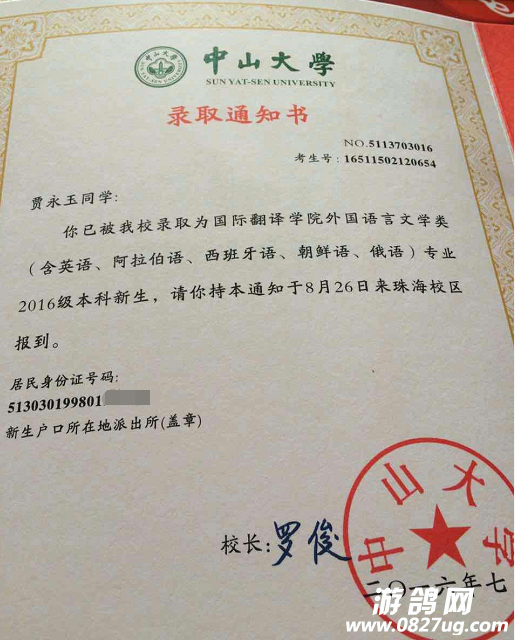 中山大學
SUN YAT-SEN UNIVERSITY
录取通知书
NO.5113703016
考生号:16511502120654
贾永玉同学:
你已被我校录取为国际翻译学院外国语言文学类
(含英语、阿拉伯语、西班牙语、朝鲜语、俄语)专业
2016级本科新生,请你持本通知于8月26日来珠海校区
报到。
居民身份证号码:
513030199801
新生户口所在地派出所(盖章)
校长:罗俊
中山大学
二〇一六年七
游鸽网
www.0827ug.com